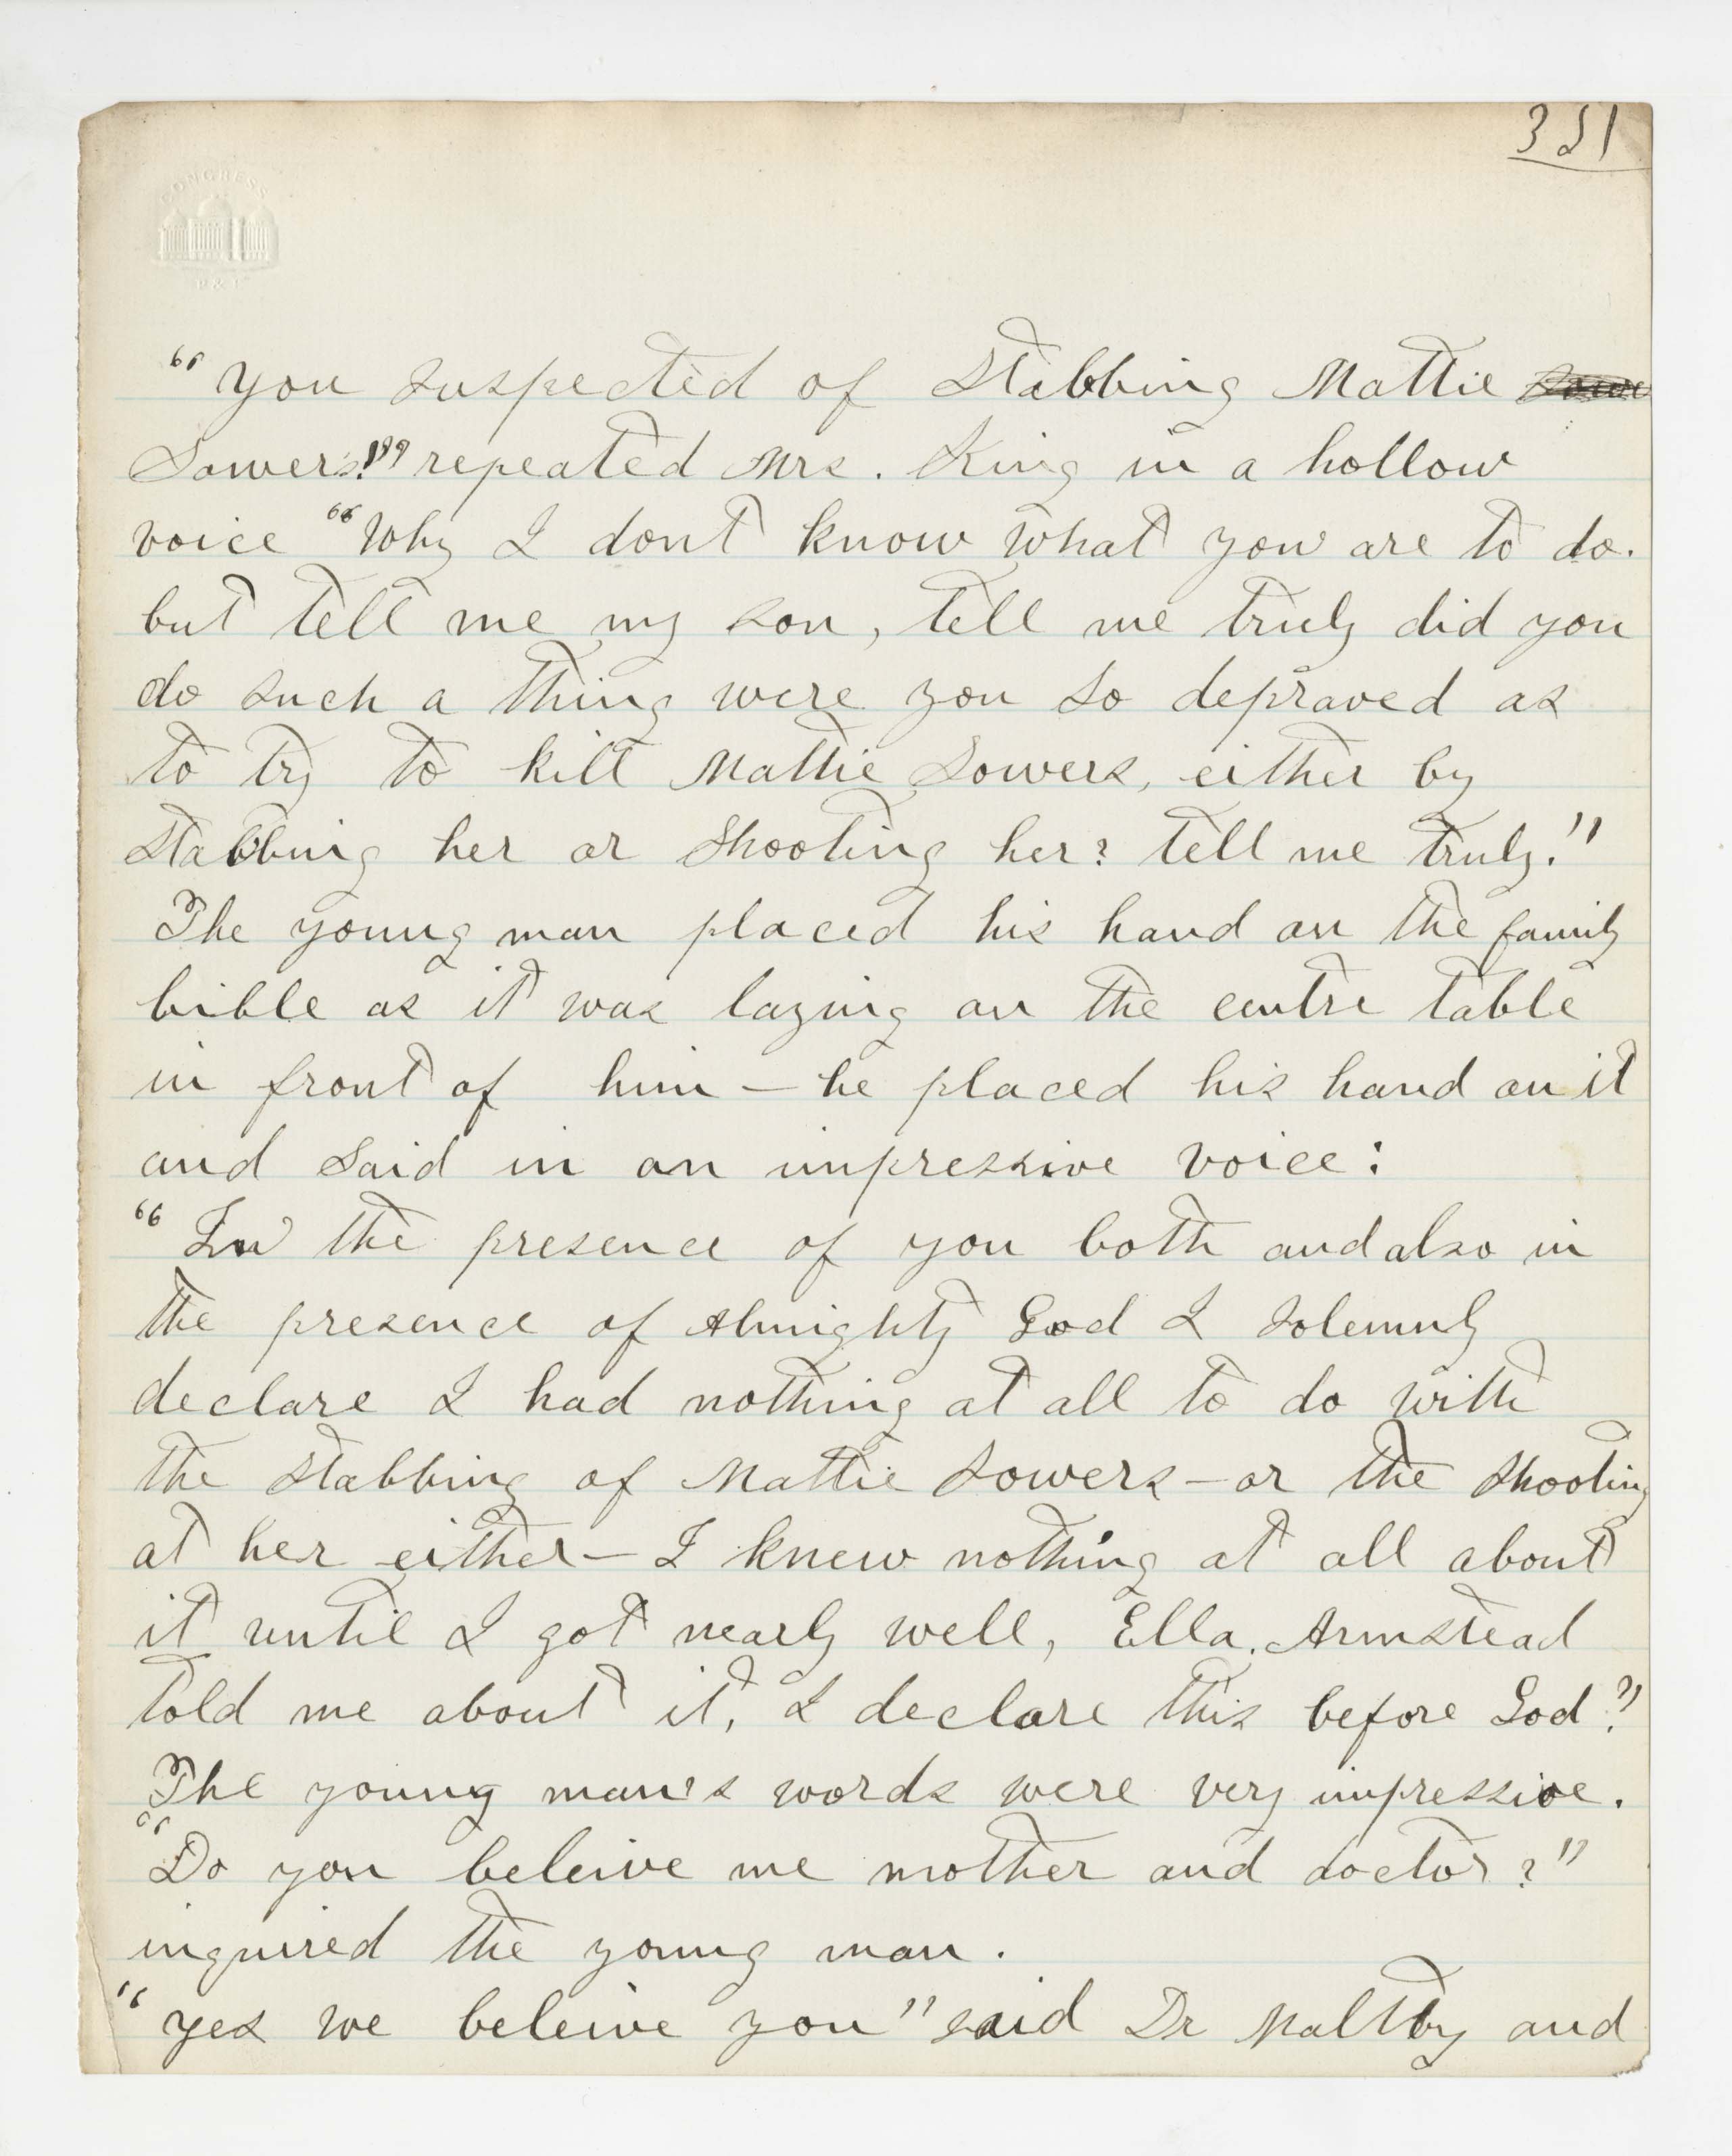 351
CONGRESS
P & P
"you suspected of stabbing Mattie
Sowers!" repeated Mrs. King in a hollow
voice "Why I dont know what you are to do.
but tell me my son, tell me truly did you
do such a thing were you so depraved as
to try to kill Mattie Sowers, either by
stabbing her or shooting her? tell me truly."
The young man placed his hand on the family
bible as it was laying on the centre table
in front of him — he placed his hand on it
and said in an impressive voice:
"In the presence of you both and also in
the presence of Almighty God I solemnly
declare I had nothing at all to do with
the stabbing of Mattie Sowers — or the shooting
at her either — I knew nothing at all about
it until I got nearly well, Ella. Armstead
told me about it, I declare this before God?"
The young man's words were very impressive.
"Do you beleive me mother and doctor?"
inquired the young man.
"yes we beleive you" said Dr Maltby and